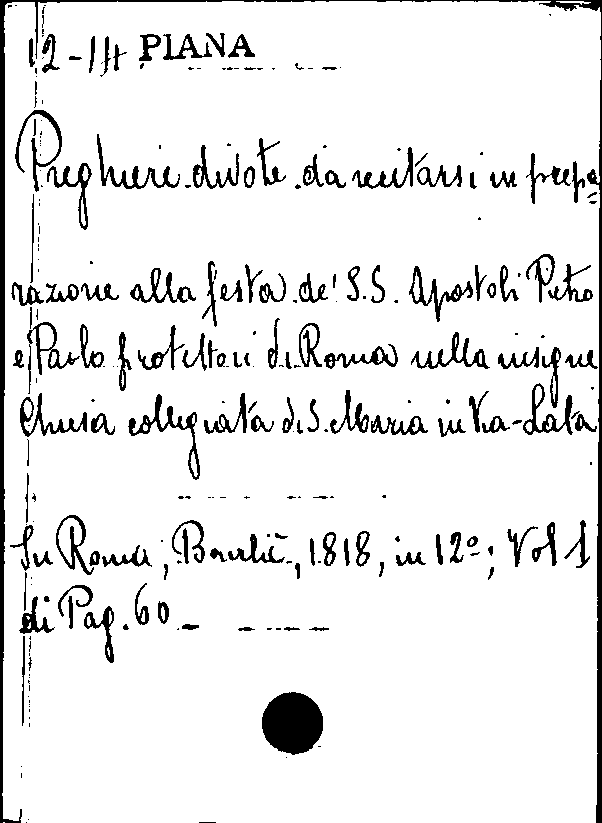 12-14 PIANA
Preghiere divote da recitarsi in prepa=
razione alla festa de' S.S. Apostoli Pietro
e Paolo protettori di Roma nella insigne
Chiesa collegiata di S. Maria in Via-Lata
In Roma, 1818, in 12º; Vol 1
di Pag. 60_